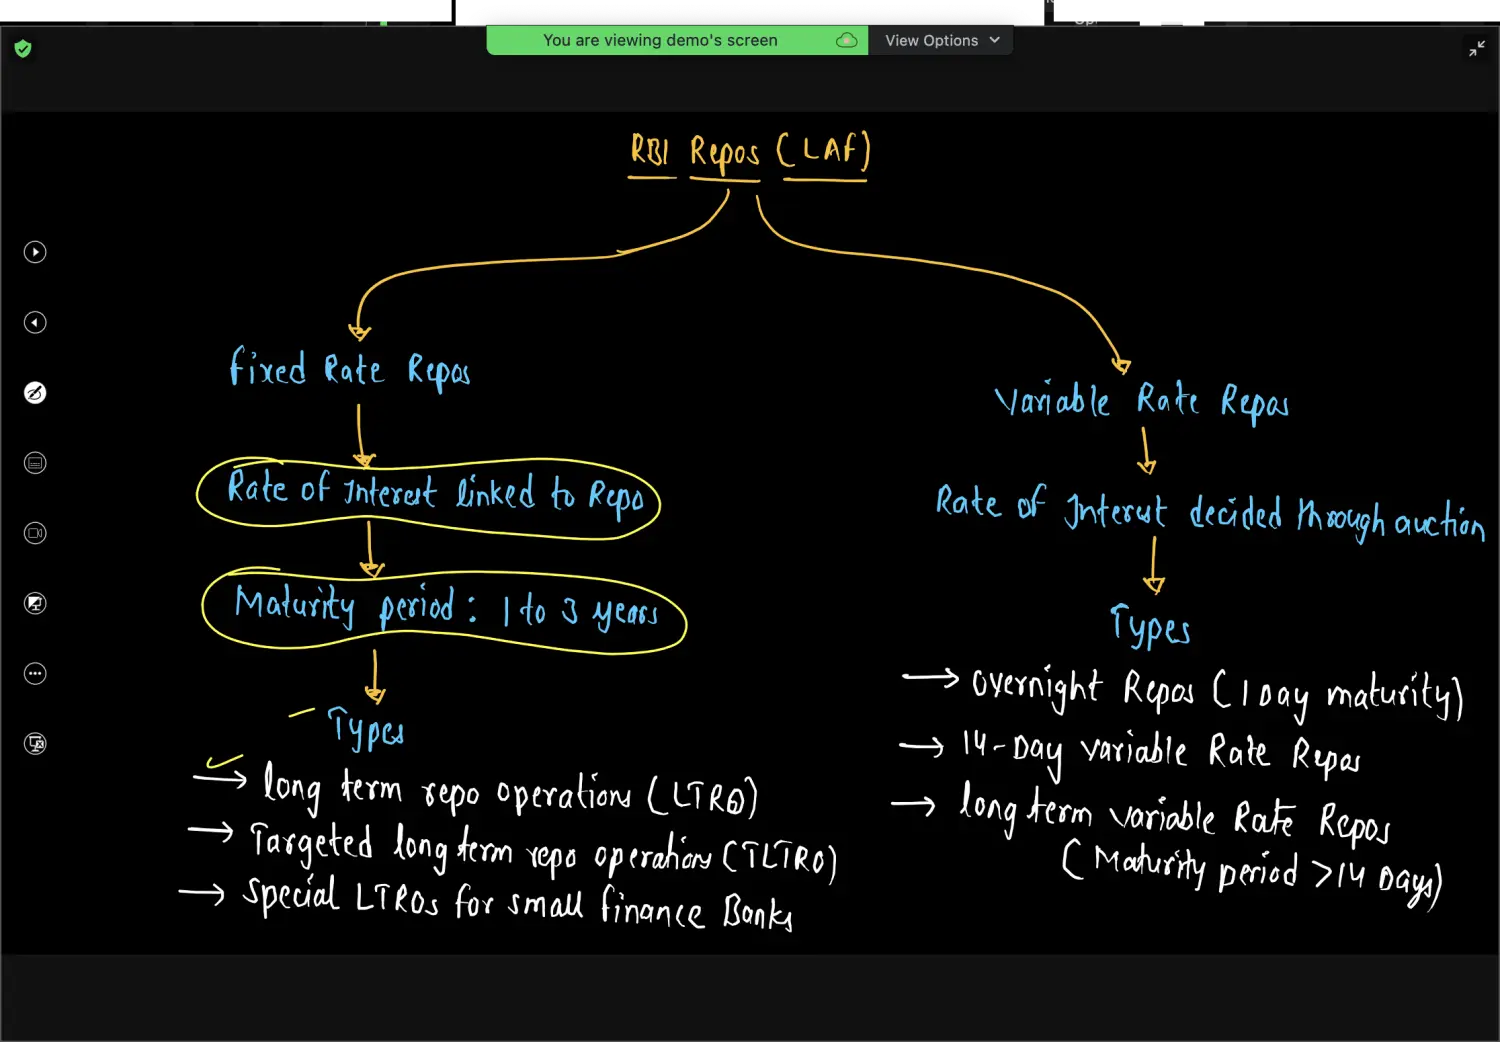 You are viewing demo's screen
View Options
RBI Repos (LAF)
Fixed Rate Repos
Rate of Interest linked to Repo
Maturity period : 1 to 3 years
Types
→ Long term repo operations (LTRO)
→ Targeted long term repo operations (TLTRO)
→ Special LTROs for small finance Banks
Variable Rate Repos
Rate of Interest decided through auction
Types
→ Overnight Repos (1 Day maturity)
→ 14-Day variable Rate Repos
→ long term variable Rate Repos
(Maturity period >14 Days)